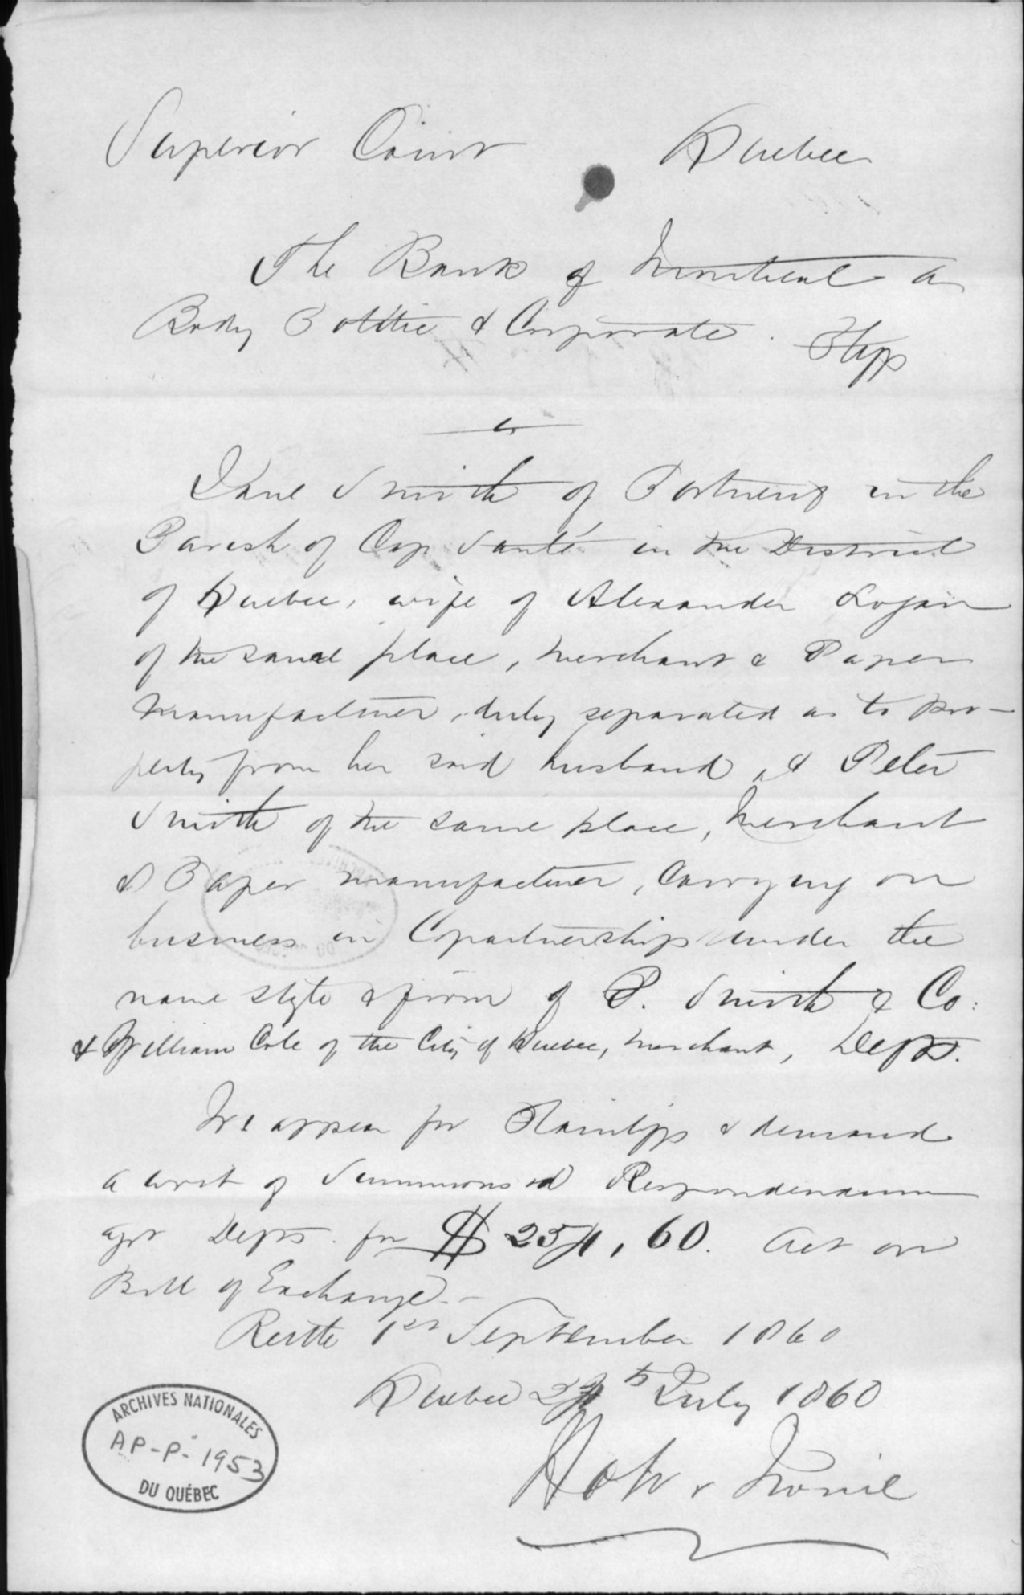 Superior Court Quebec
The Bank of Montreal a
Body Politic & Corporate. Plffs
vs
Jane Smith of Portneuf in the
Parish of Cap Santé in the District
of Quebec, wife of Alexander Logan
of the same place, merchant & Paper
manufacturer, duly separated as to pro-
perty from her said husband, & Peter
Smith of the same place, Merchant
& Paper manufacturer, Carrying on
business in Copartnership under the
name style & firm of P. Smith & Co:
& William Cole of the City of Quebec, merchant, Defts.
We appear for Plaintiffs & demand
a writ of Summons ad Respondendum
agst Defts for $ 254,60. Act on
Bill of Exchange.-
Rettle 1st September 1860
Quebec 24th July 1860
Holt & Irvine
ARCHIVES NATIONALES
AP-P-1953
DU QUÉBEC